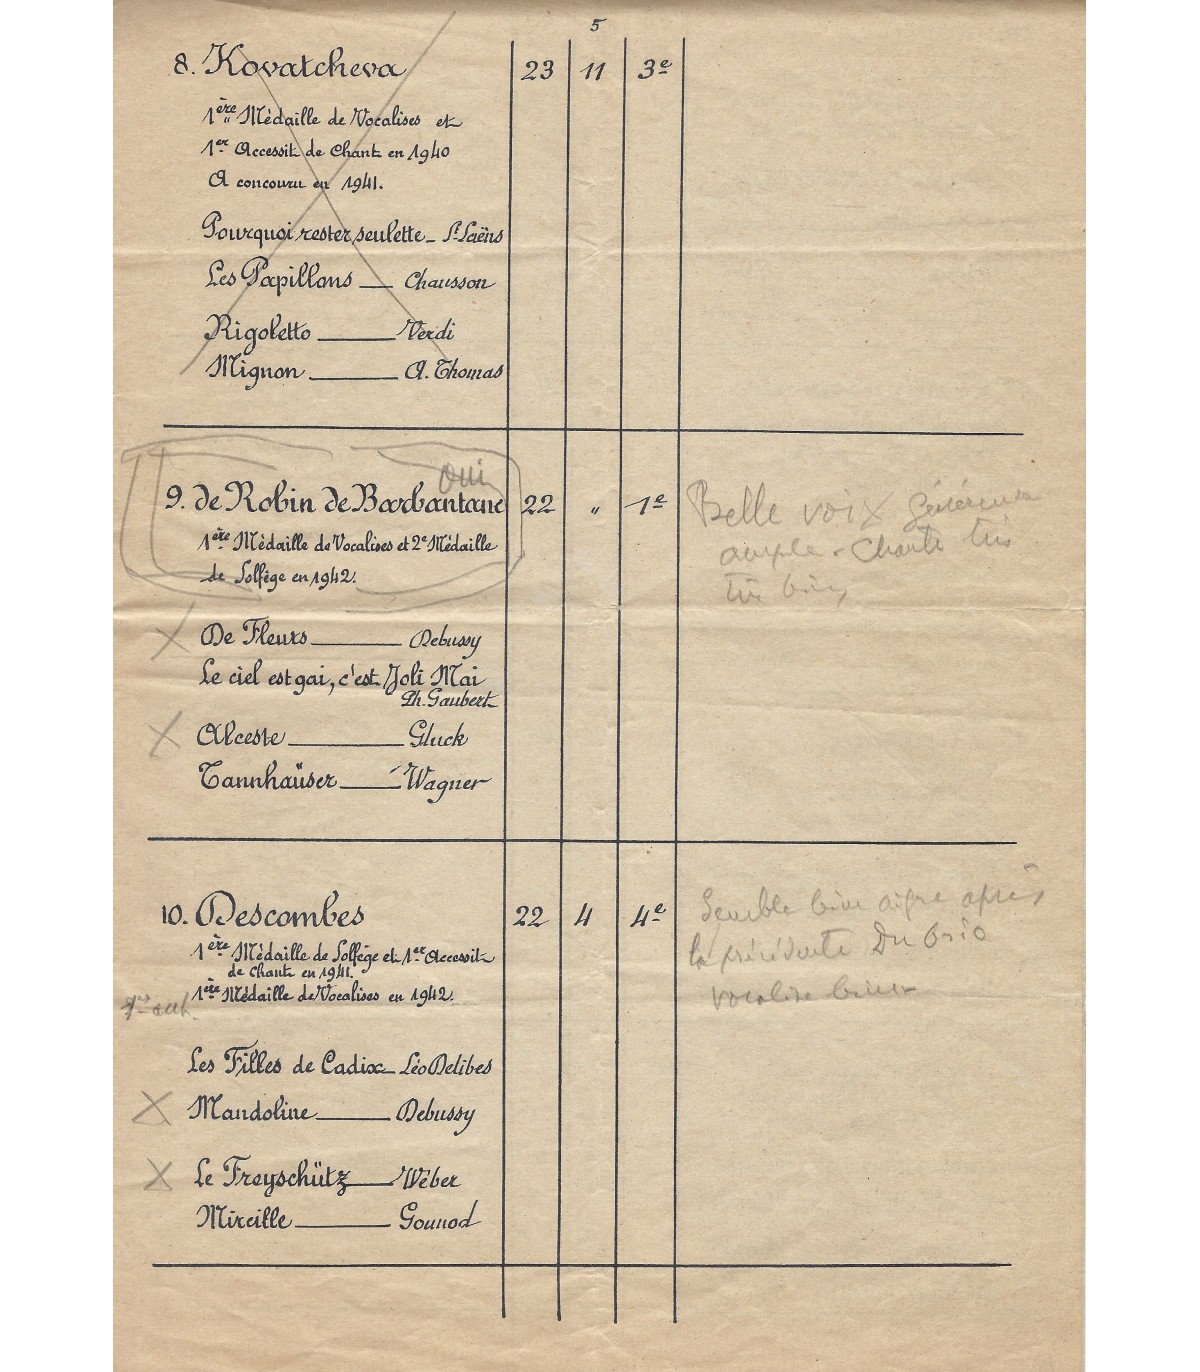 5
8. Kovatcheva 23 11 3e
1ère Médaille de Vocalises et
1er Accessit de Chant en 1940
A concouru en 1941.
Pourquoi rester seulette - St Saëns
Les Papillons — Chausson
Rigoletto — Verdi
Mignon — A. Thomas
oui
9. de Robin de Barbantane 22 " 1e Belle voix généreuse
1ère Médaille de Vocalises et 2e Médaille ample - Chante très
de Solfège en 1942. très bien
De Fleurs — Debussy
Le ciel est gai, c'est Joli Mai
Ph. Gaubert
Alceste — Gluck
Tannhaüser — Wagner
10. Descombes 22 4 4e Semble bien aigre après
1ère Médaille de Solfège et 1er Accessit la précédente Du brio
de Chant en 1941.
1ère Médaille de Vocalises en 1942. vocalise bien
Les Filles de Cadix — Léo Delibes
Mandoline — Debussy
Le Freyschütz — Wéber
Mireille — Gounod